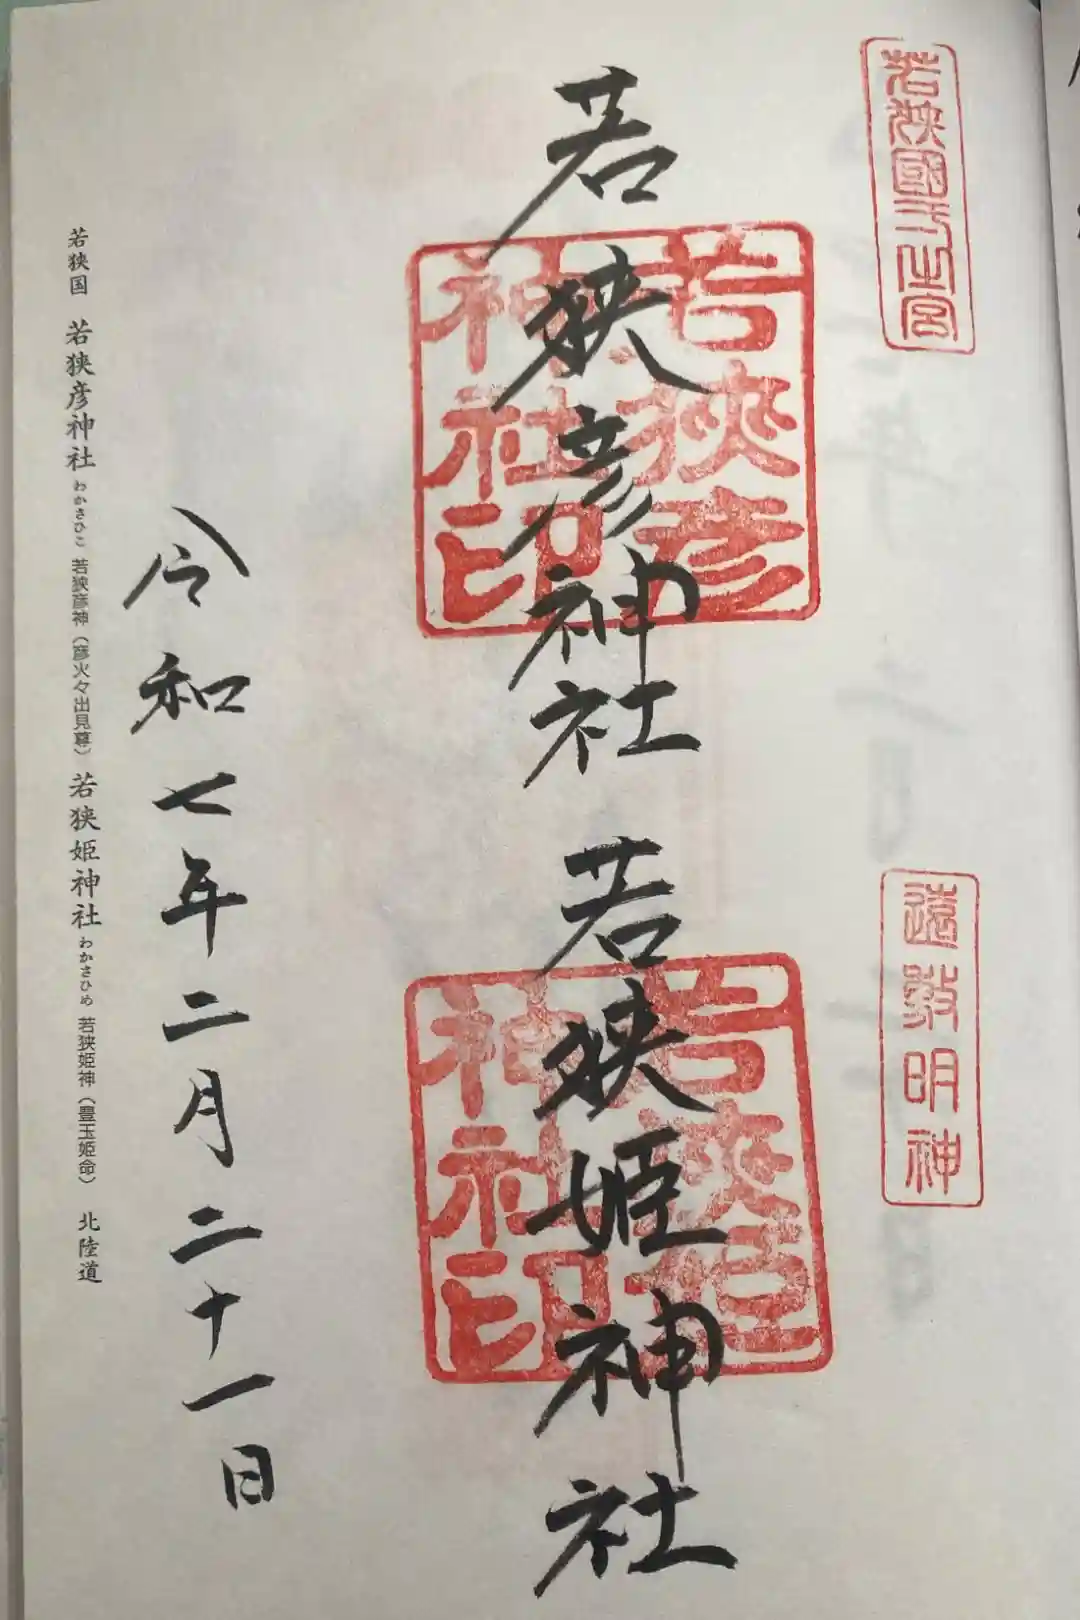 若狹國一之宮
遠敷明神
若狭彦神社 若狭姫神社
若狹彦
神社印
若狹姫
神社印
令和七年二月二十一日
若狭国 若狭彦神社 わかさひこ 若狭彦神（彦火々出見尊） 若狭姫神社 わかさひめ 若狭姫神（豊玉姫命） 北陸道